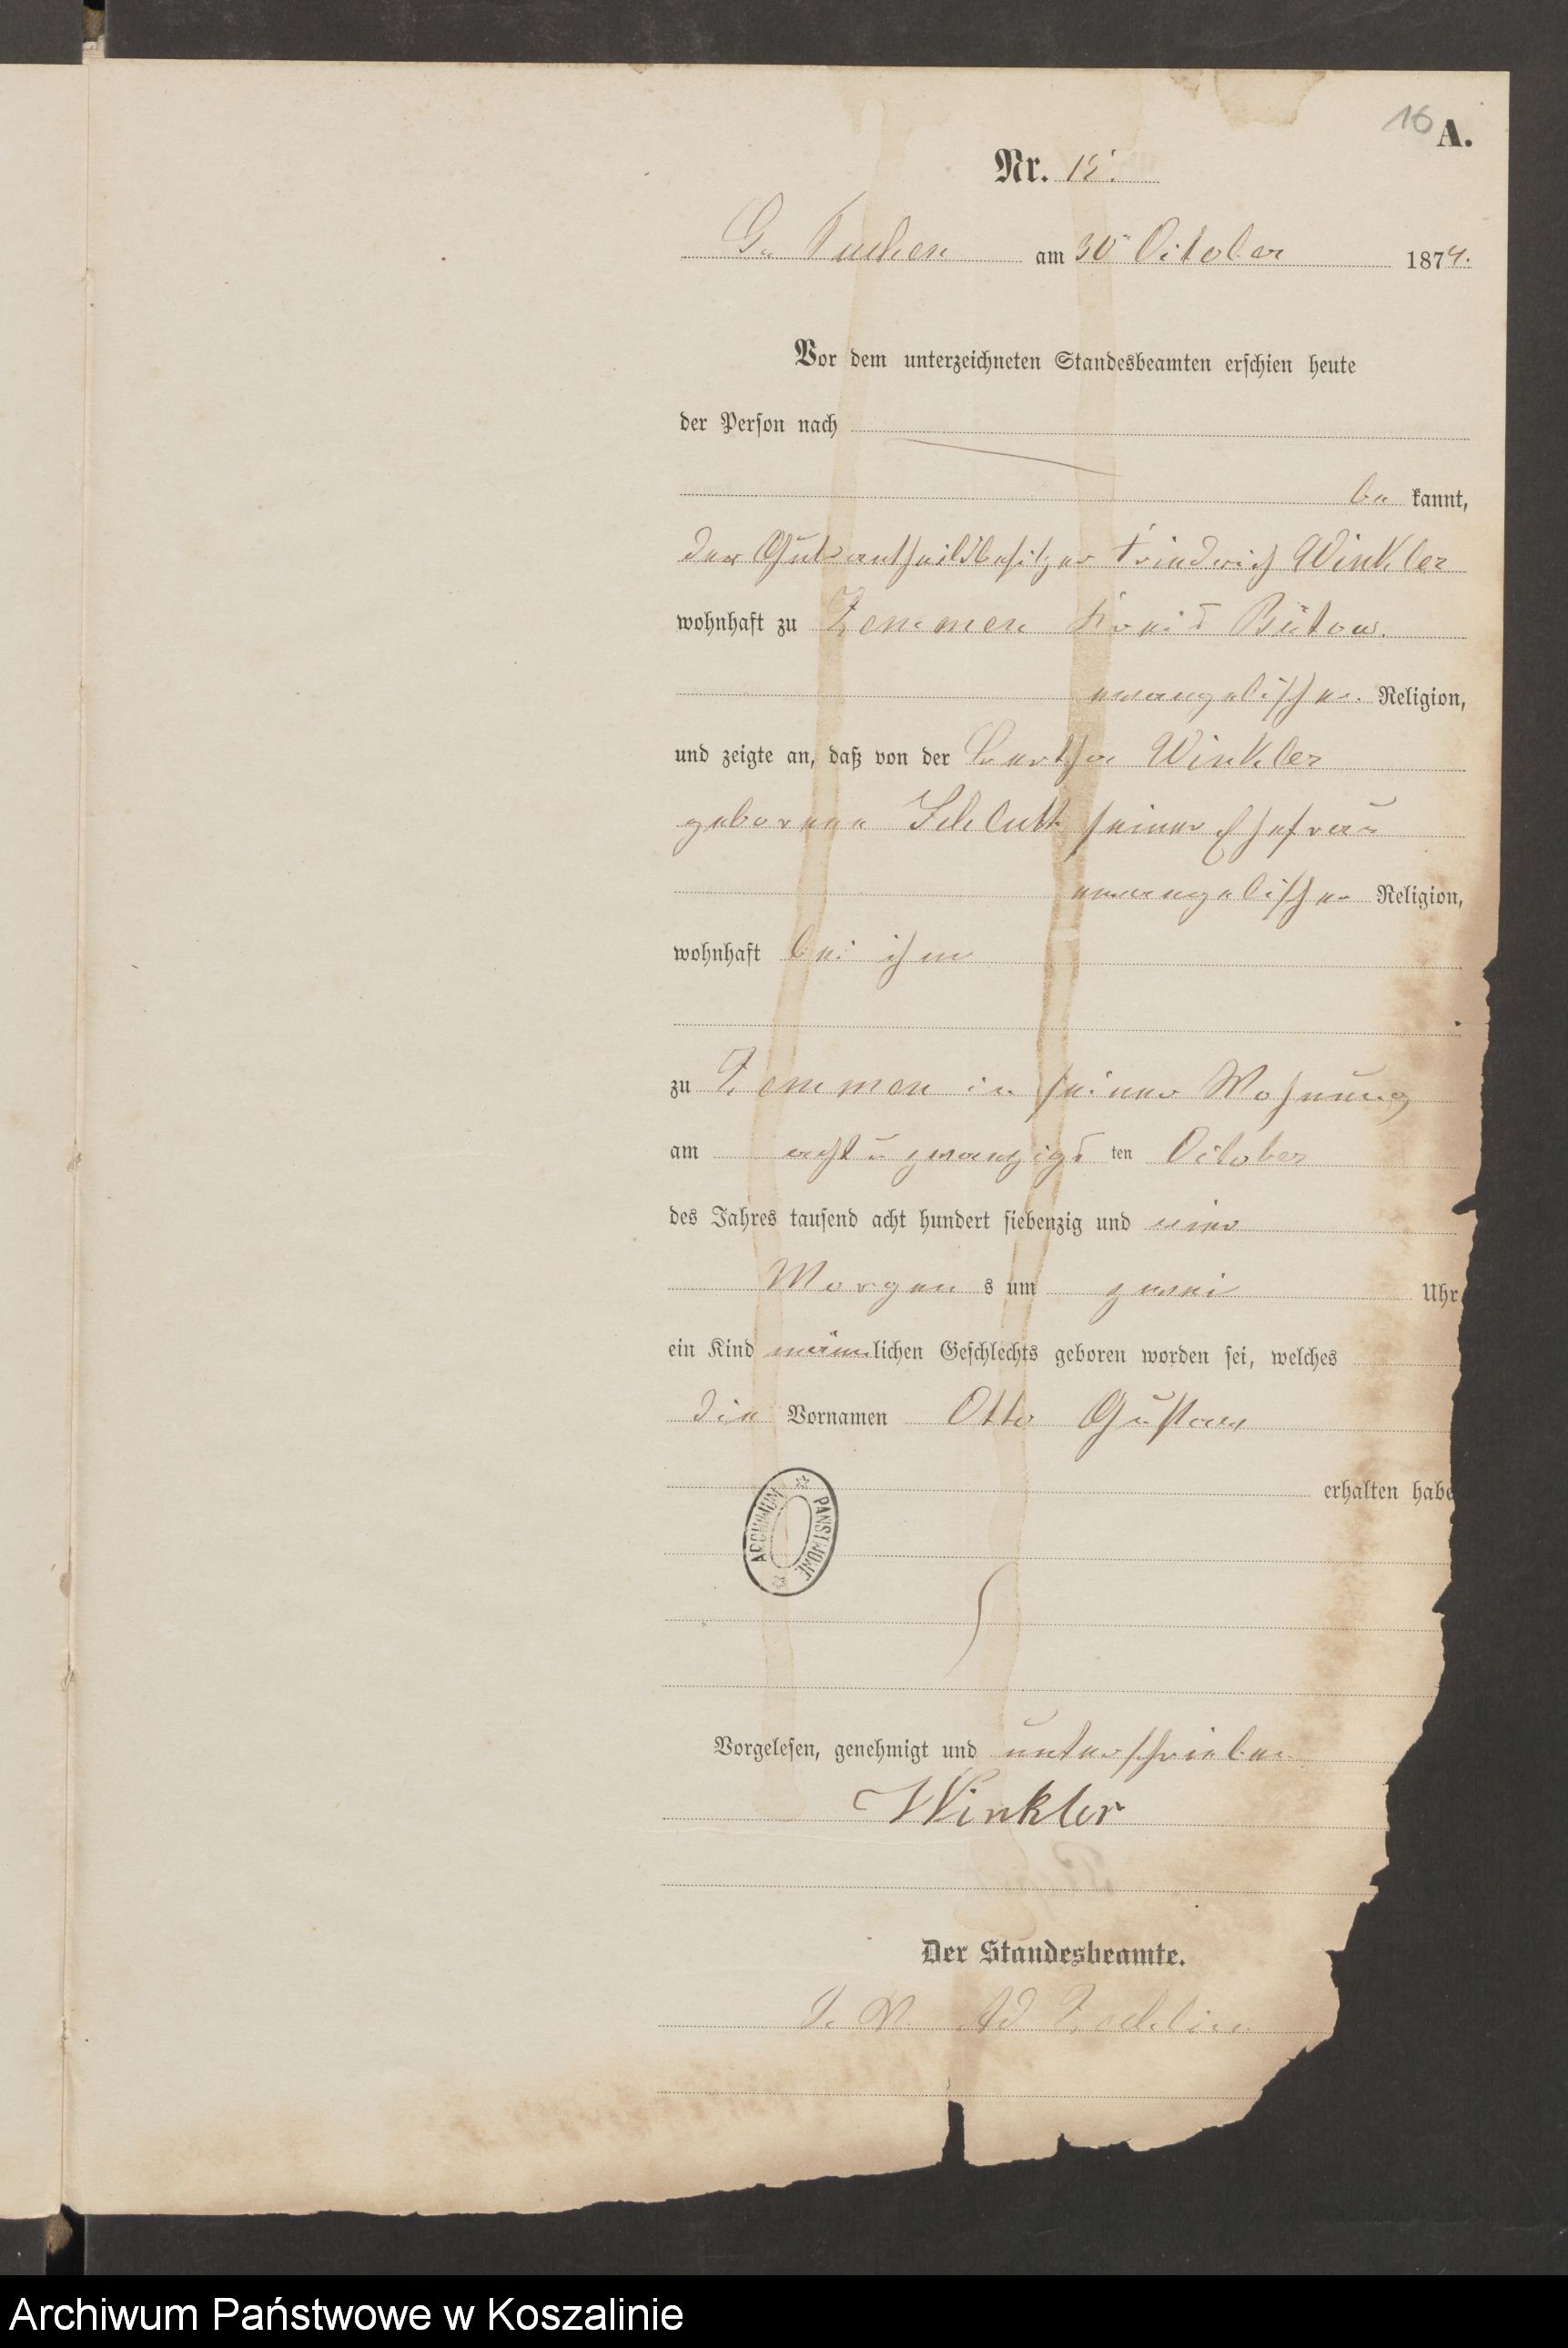 16 A.
Nr. 15.
Gr Tuchen am 30t October 1874.
Vor dem unterzeichneten Standesbeamten erschien heute
der Person nach
be kannt,
der Gutsantheilsbesitzer Friedrich Winkler
wohnhaft zu Zemmen Kreis Bütow.
evangelischer Religion,
und zeigte an, daß von der Bertha Winkler
geborene Schlutt seiner Ehefrau
evangelischer Religion,
wohnhaft bei ihm
zu Zemmen in seiner Wohnung
am acht u zwanzigs ten October
des Jahres tausend acht hundert siebenzig und vier
Morgen s um zwei Uhr
ein Kind männlichen Geschlechts geboren worden sei, welches
die Vornamen Otto Gustav
erhalten habe
ARCHIWUM PAŃSTWOWE
Vorgelesen, genehmigt und unterschrieben
Winkler
Der Standesbeamte.
Archiwum Państwowe w Koszalinie